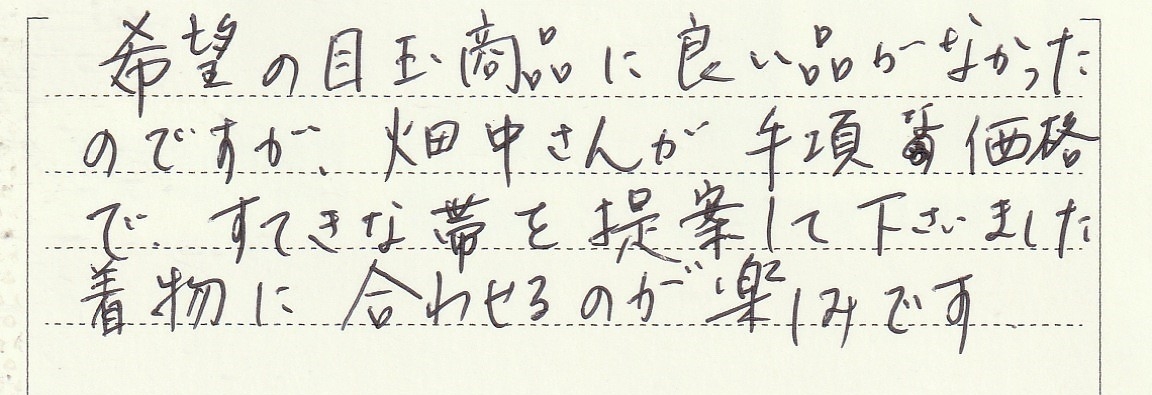 希望の目玉商品に良い品がなかった
のですが、畑中さんが手項な価格
で、すてきな帯を提案して下さいました
着物に合わせるのが楽しみです